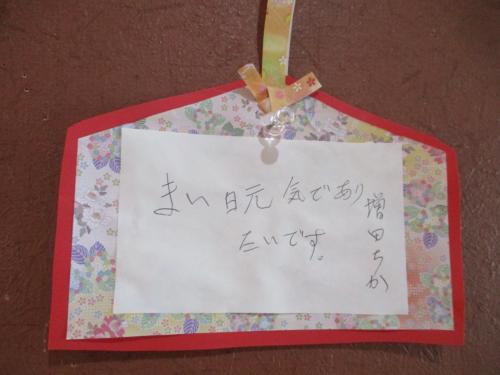 まい日元気であり
たいです。
増田ちか